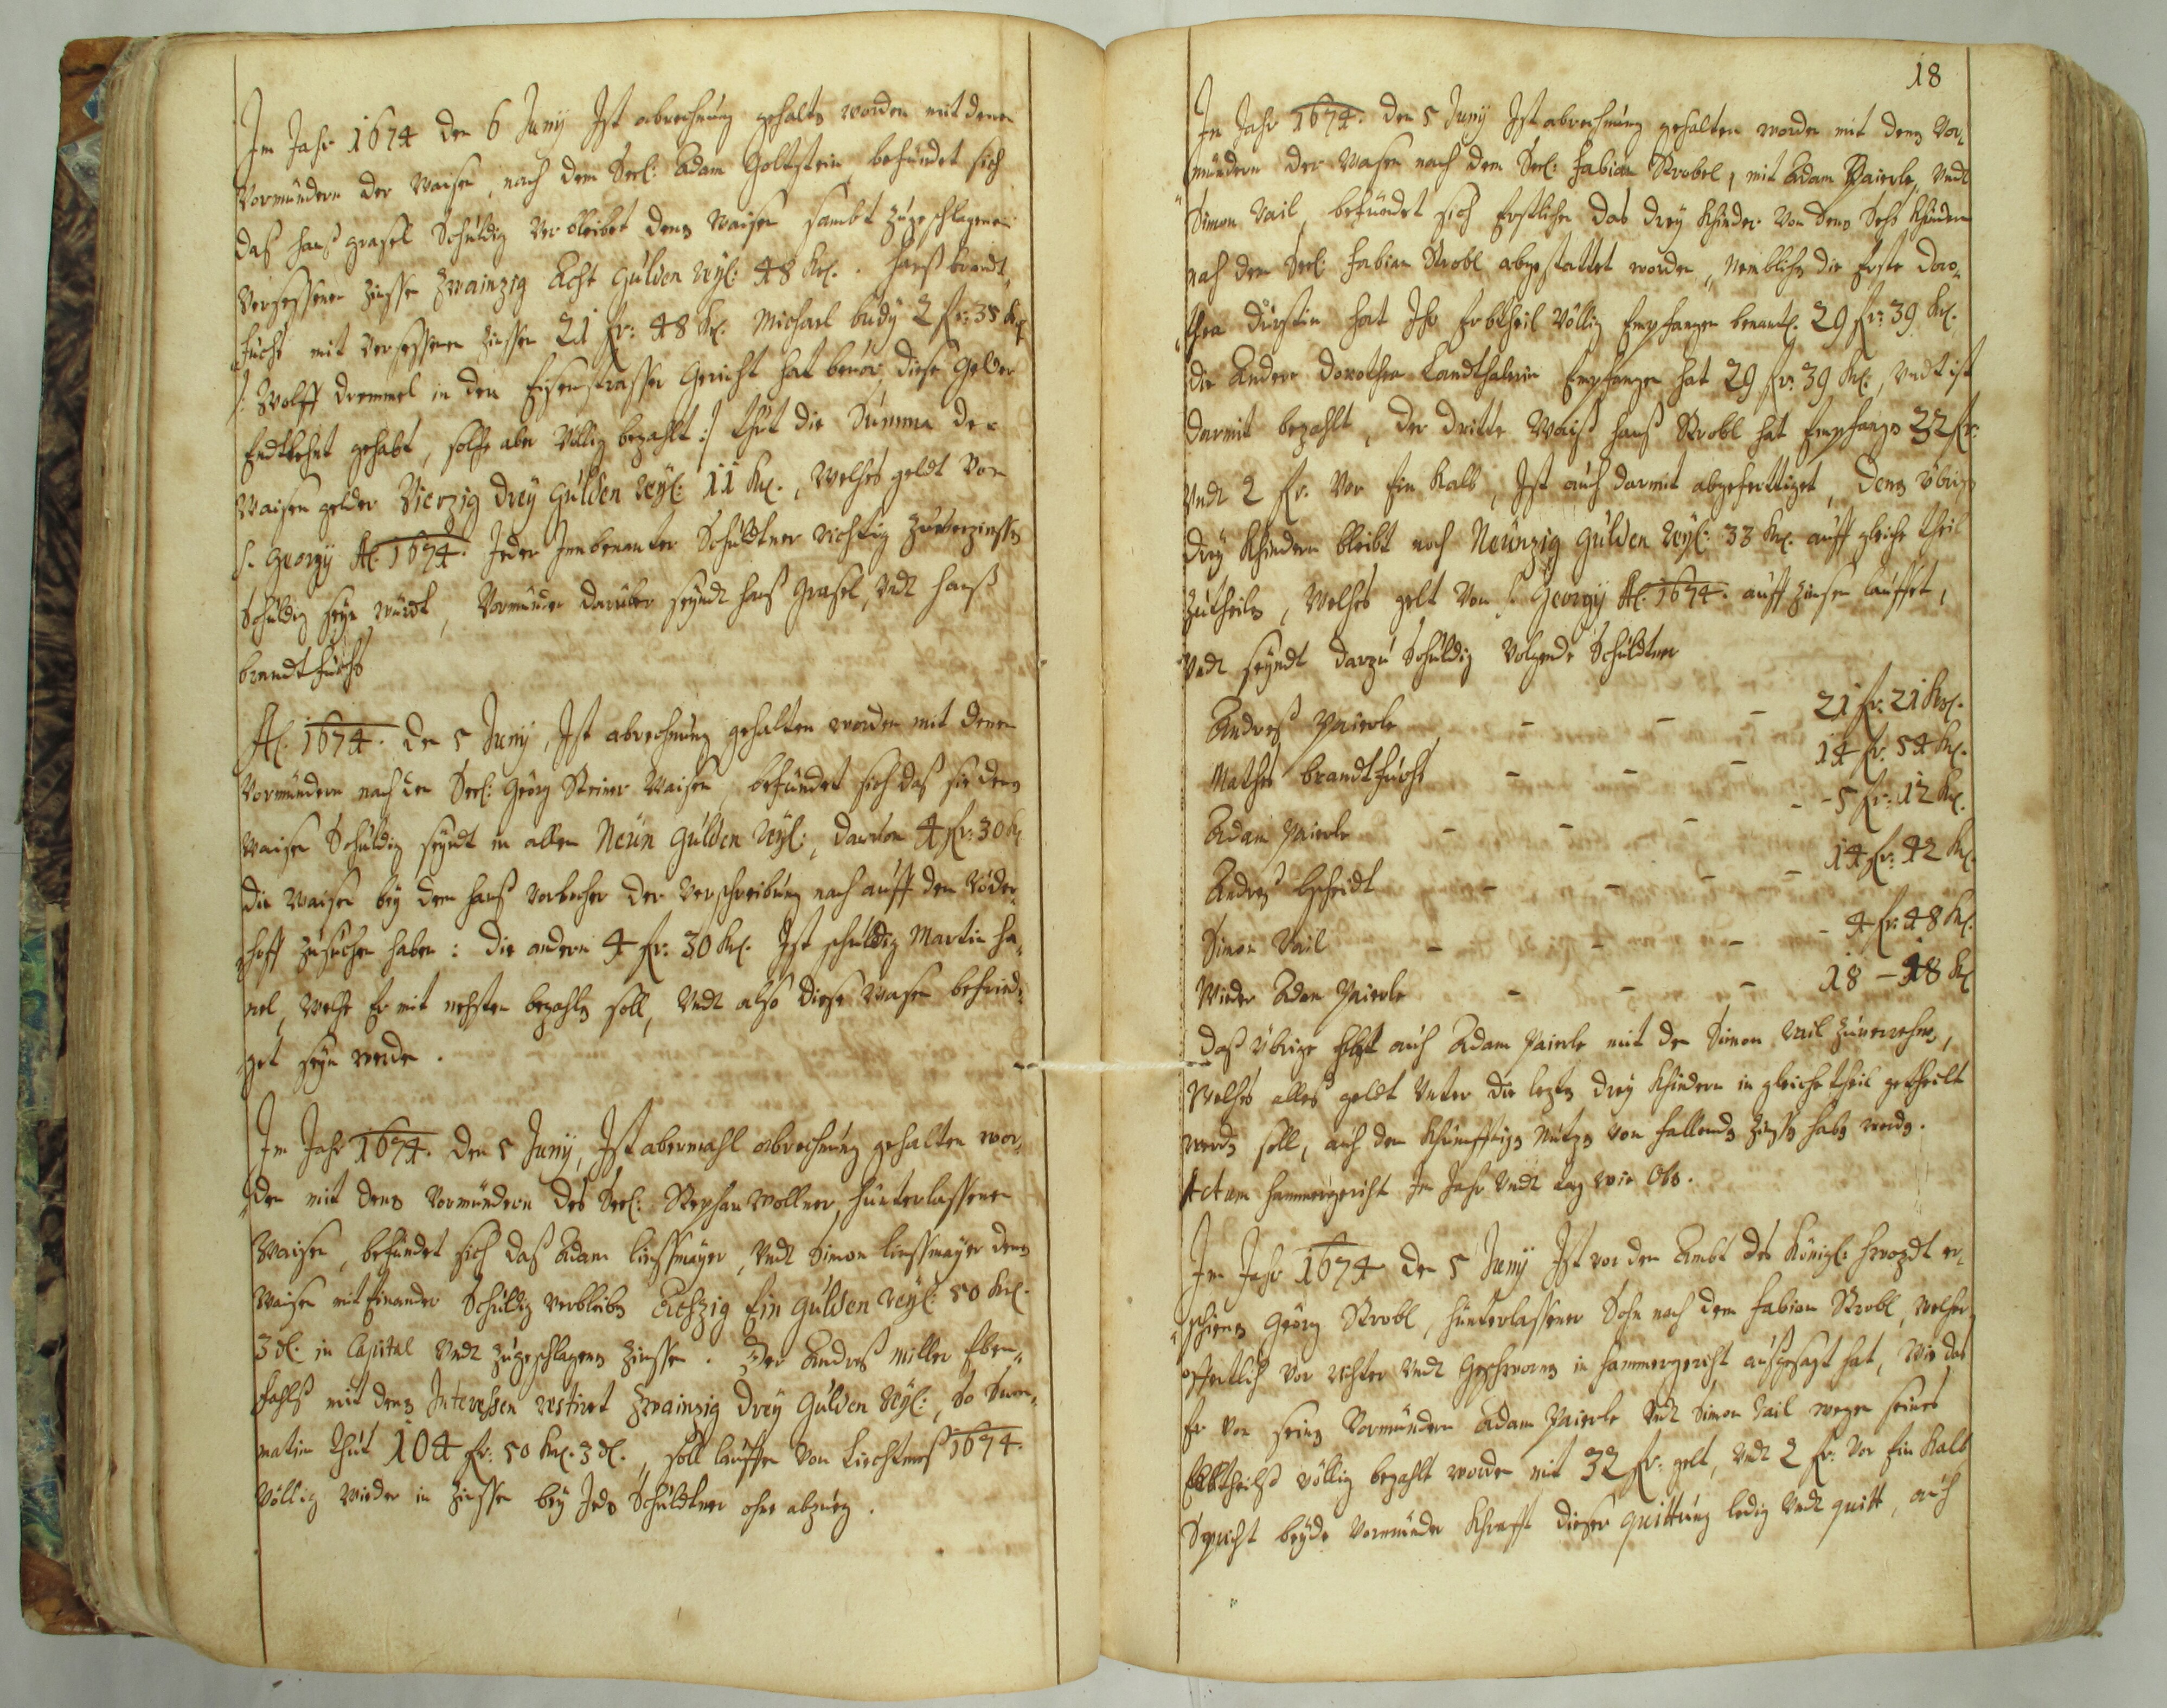 Im Jahr 1674 den 6 Juny Ist abrechnung gehalten worden mit denen
Vormündern der Waisen, nach dem Seel: Adam Goltstein, befindet sich
daß Hanß Grasel Schuldig Verbleibet denen Waisen sambt zugeschlagenen
Versessenen Zinssen Zwainzig Acht Gulden Reyl: 48 Krl. Hanß brandt
fuchs mit Versessenen Zinssen 21 fr: 48 Krl: Michael budy 2 fr: 35 Krl
/: Wolff Dremmel in den Eysenstrasser Gericht hat bevor diese Gelder
Endtlehnt gehabt, solche aber Völlig bezahlt :/ thut die Summa der
Waisen gelder Vierzig Drey Gulden Reyl: 11 Krl., Welches geldt Von
S. Georgy Al. 1674. Jeder Innbenanter Schuldtner richtig Zuverzinssen
Schuldig seyn wirdt, Vormünder darüber seyndt Hanß Grasel, Vndt Hanß
brandtfuchs
Al. 1674. Den 5 Juny, Ist abrechnung gehalten worden mit denen
Vormündern nach den Seel: Georg Steiner Waisen, befündet sich daß sie denen
Waisen Schuldig seyndt in allen Neün Gulden Reyl:, davon 4 fr: 30 Krl
die Waisen bey dem Hanß der Verschreibung nach auff den
hoff zusuchen haben: die andern 4 fr: 30 Krl. Ist schuldig Martin Ha,
nel, Welche Er mit nehsten bezahlen soll, Vndt also diese Waisen befried,
get seyn werden.
Im Jahr 1674. Den 5 Juny, Ist abermahl abrechnung gehalten wor,
den mit denen Vormündern des Seel: Stephan Wollner, hinterlassenen
Waisen, befündet sich daß Adam Liessmayer, Vndt Simon Liessmayer denen
Waisen mit Einander Schuldig verbleiben Achzig Ein Gulden Reyl: 50 Krl.
3 dl. in Capital Vndt Zugeschlagenen Zinssen. Der Andreß Miller Eben,
fahls mit denen Interessen restiret Zwainzig Drey Gulden Reyl:, So Sum,
matim thut 104 fr: 50 Krl. 3 dl., soll lauffen Von Liechtmeß 1674.
Völlig Wieder in Zinssen bey Jeden Schuldtner ohne abzug.
18
Im Jahr 1674. Den 5 Juny Ist abrechnung gehalten worden mit denen Vor,
mündern der Waisen nach dem Seel: Fabian Strobel, mit Adam Paierle, Vndt
Simon Vail, befündet sich Erstlichen das drey Khinder Von denen Sechs Khindern
nach dem Seel: Fabian Strobl abgestattet worden, Nemblich die Erste Doro,
thea hat Ihr Erbtheil Völlig Empfangen benantl. 29 fr: 39 Krl.
die Andere Dorothea Landthalerin Empfangen hat 29 fr: 39 Krl:, Vndt ist
darmit bezahlt, der dritte Waiß Hanß Strobl hat Empfangen 32 fr:
Vndt 2 fr: Vor Ein Kalb, Ist auch darmit abgefertiget, denen übrigen
drey Khindern bleibt noch Neünzig Gulden Reyl: 33 Krl. auff gleiche theil
Zutheilen, Welches gelt Von S. Georgy Al. 1674. auff Zinsen lauffet,
Vndt seyndt darzu Schuldig Volgende Schuldtner
Andreß Paierle - - - 21 fr: 21 Krl.
Mathes brandtfuchs - - - 14 fr: 54 Krl.
Adam Paierle - - - - - 5 fr: 12 Krl.
Andreß - - - - 14 fr: 42 Krl.
Simon Vail - - - - 4 fr: 48 Krl.
Wieder Adam Paierle - - - 18 - 18 Krl
Daß übrige hat auch Adam Paierle mit den Simon Vail Zuverrechnen,
Welches alles geldt Vnter die lezten drey Khindern in gleiche theil getheilt
werden soll, auch den Khünfftigen Nutzen von fallenden Zinsen haben werden.
Actum Hammergericht Im Jahr Vndt tag wie Oben.
Im Jahr 1674 den 5 Juny Ist vor den Ambt des Königl: Hwozdt er,
schienen Georg Strobl, hinterlassener Sohn nach dem Fabian Strobl, welcher
offentlich vor richter Vndt Geschworenen in Hammergericht außgesagt hat, Wie das
Er Von seinen Vormündern Adam Paierle Vndt Simon Vail wegen seines
Erbtheilß völlig bezahlt worden mit 32 fr: gelt, Vndt 2 fr: Vor Ein Kalb
Spricht beyde Vormünder Khrafft dieser quittung ledig Vndt quitt, auch